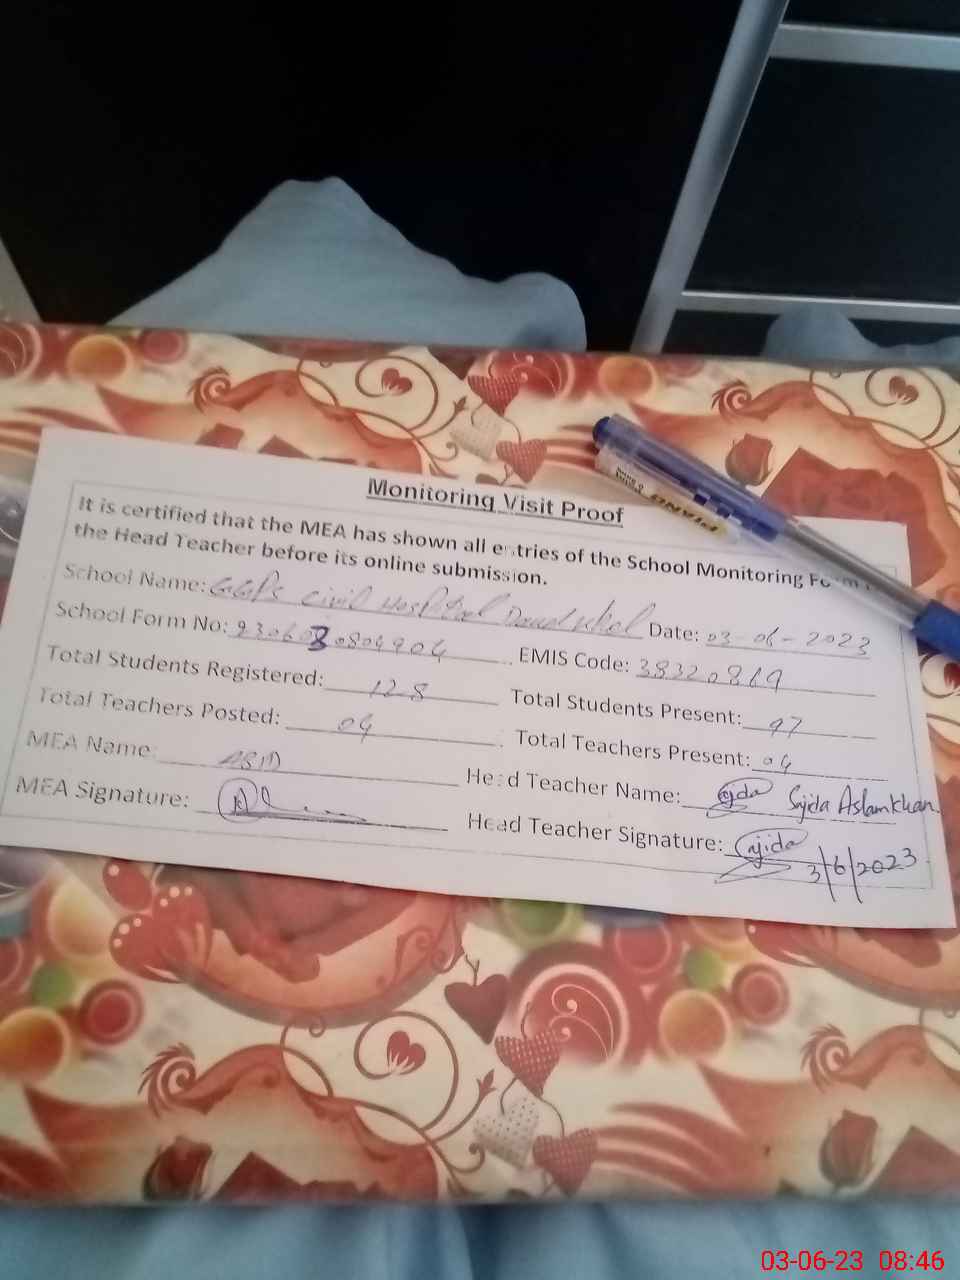 Monitoring Visit Proof
It is certified that the MEA has shown all entries of the School Monitoring Form
the Head Teacher before its online submission.
School Name: GGPS Civil Hospital Daudkhel Date: 03-06-2023
School Form No: 9306030804904 EMIS Code: 38320869
Total Students Registered: 128 Total Students Present: 97
Total Teachers Posted: 04 Total Teachers Present: 04
MEA Name: Head Teacher Name: Sajida Aslam Khan.
MEA Signature: Head Teacher Signature: Sajida
3/6/2023
PIANO
03-06-23 08:46